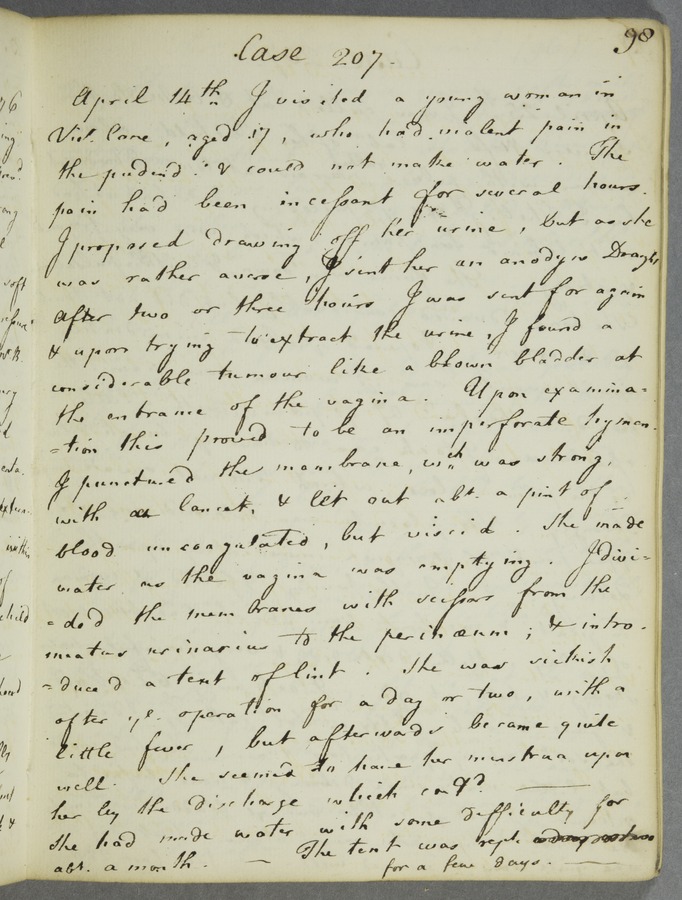 98
Case 207.
April 14th I visited a young woman in
Vid. Lane, aged 17, who had violent pain in
the pudend: & could not make water. The
pain had been incessant for several hours.
I proposed drawing off her urine, but as she
was rather averse, I sent her an anodyne Draught
After two or three hours I was sent for again
& upon trying to extract the urine, I found a
considerable tumour like a blown bladder at
the entrance of the vagina. Upon examina=
=tion this proved to be an imperforate hymen.
I punctured the membrane, wch was strong,
with a lancet, & let out abt. a pint of
blood uncoagulated, but viscid. She made
water as the vagina was emptying. I divi=
=ded the membranes with scissors from the
meatus urinarius to the perinæum; & intro-
=duced a tent of lint. She was sickish
after ye. operation for a day or two, with a
little fever, but afterwards became quite
well. She seemed to have her menstrua upon
her by the discharge which
She had made water with some difficulty for
abt. a month. — The tent was rept.
for a few days. —